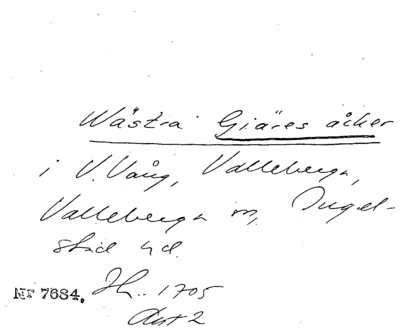 Wästra Giäres åcker
i V. Vång, Valleberga,
Valleberga sn, Ingel-
stad hd.
NF 7684. Jb. 1705
Ant 2